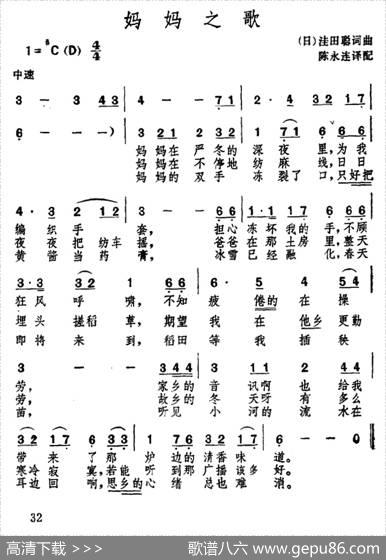 妈妈之歌
1=♯C(D) 4/4
(日)洼田聪词曲
陈永连译配
中速
3 — 3 43 | 4 — — 71 | 2· 4 3 17 |
6 — — ) | 3 21 2 32 | 1 (71) 6 66 |
妈妈在 严冬的 深夜 里,为我
妈妈在 不停地 纺麻 线,日日
妈妈的 双手 冻裂了 口,只好把
4· 3 2 12 | 3 — — 66 | 66 43 4 66 |
编织手 套, 担心 冻坏我的手,不顾
夜夜把纺车 摇, 爸爸 在那土房 里,整天
黄酱当药 膏, 冰雪 已经融 化,春天
3·3 32 1 66 | 6 6 4 54 |
狂风呼 啸,不知 疲倦的在 操
埋头搓稻 草,期望 我在他乡更勤
即将来 到,稻田 等我插秧
3 — — 344 | 4 3 17 1 2 44 |
劳, 家乡的 音讯啊 也给我
劳, 故乡的 冬天呀 有多么
苗, 听见 小河的 流水在
32 17 6 66 | 73 217 6 — ‖
带来了那 炉边的清香味道。
寒冷寂 寞,若能 听到那广播该多 好。
耳边回 响,思乡的心 绪总也难 消。
32
高清下载 》》
歌谱八六 www.gepu86.com